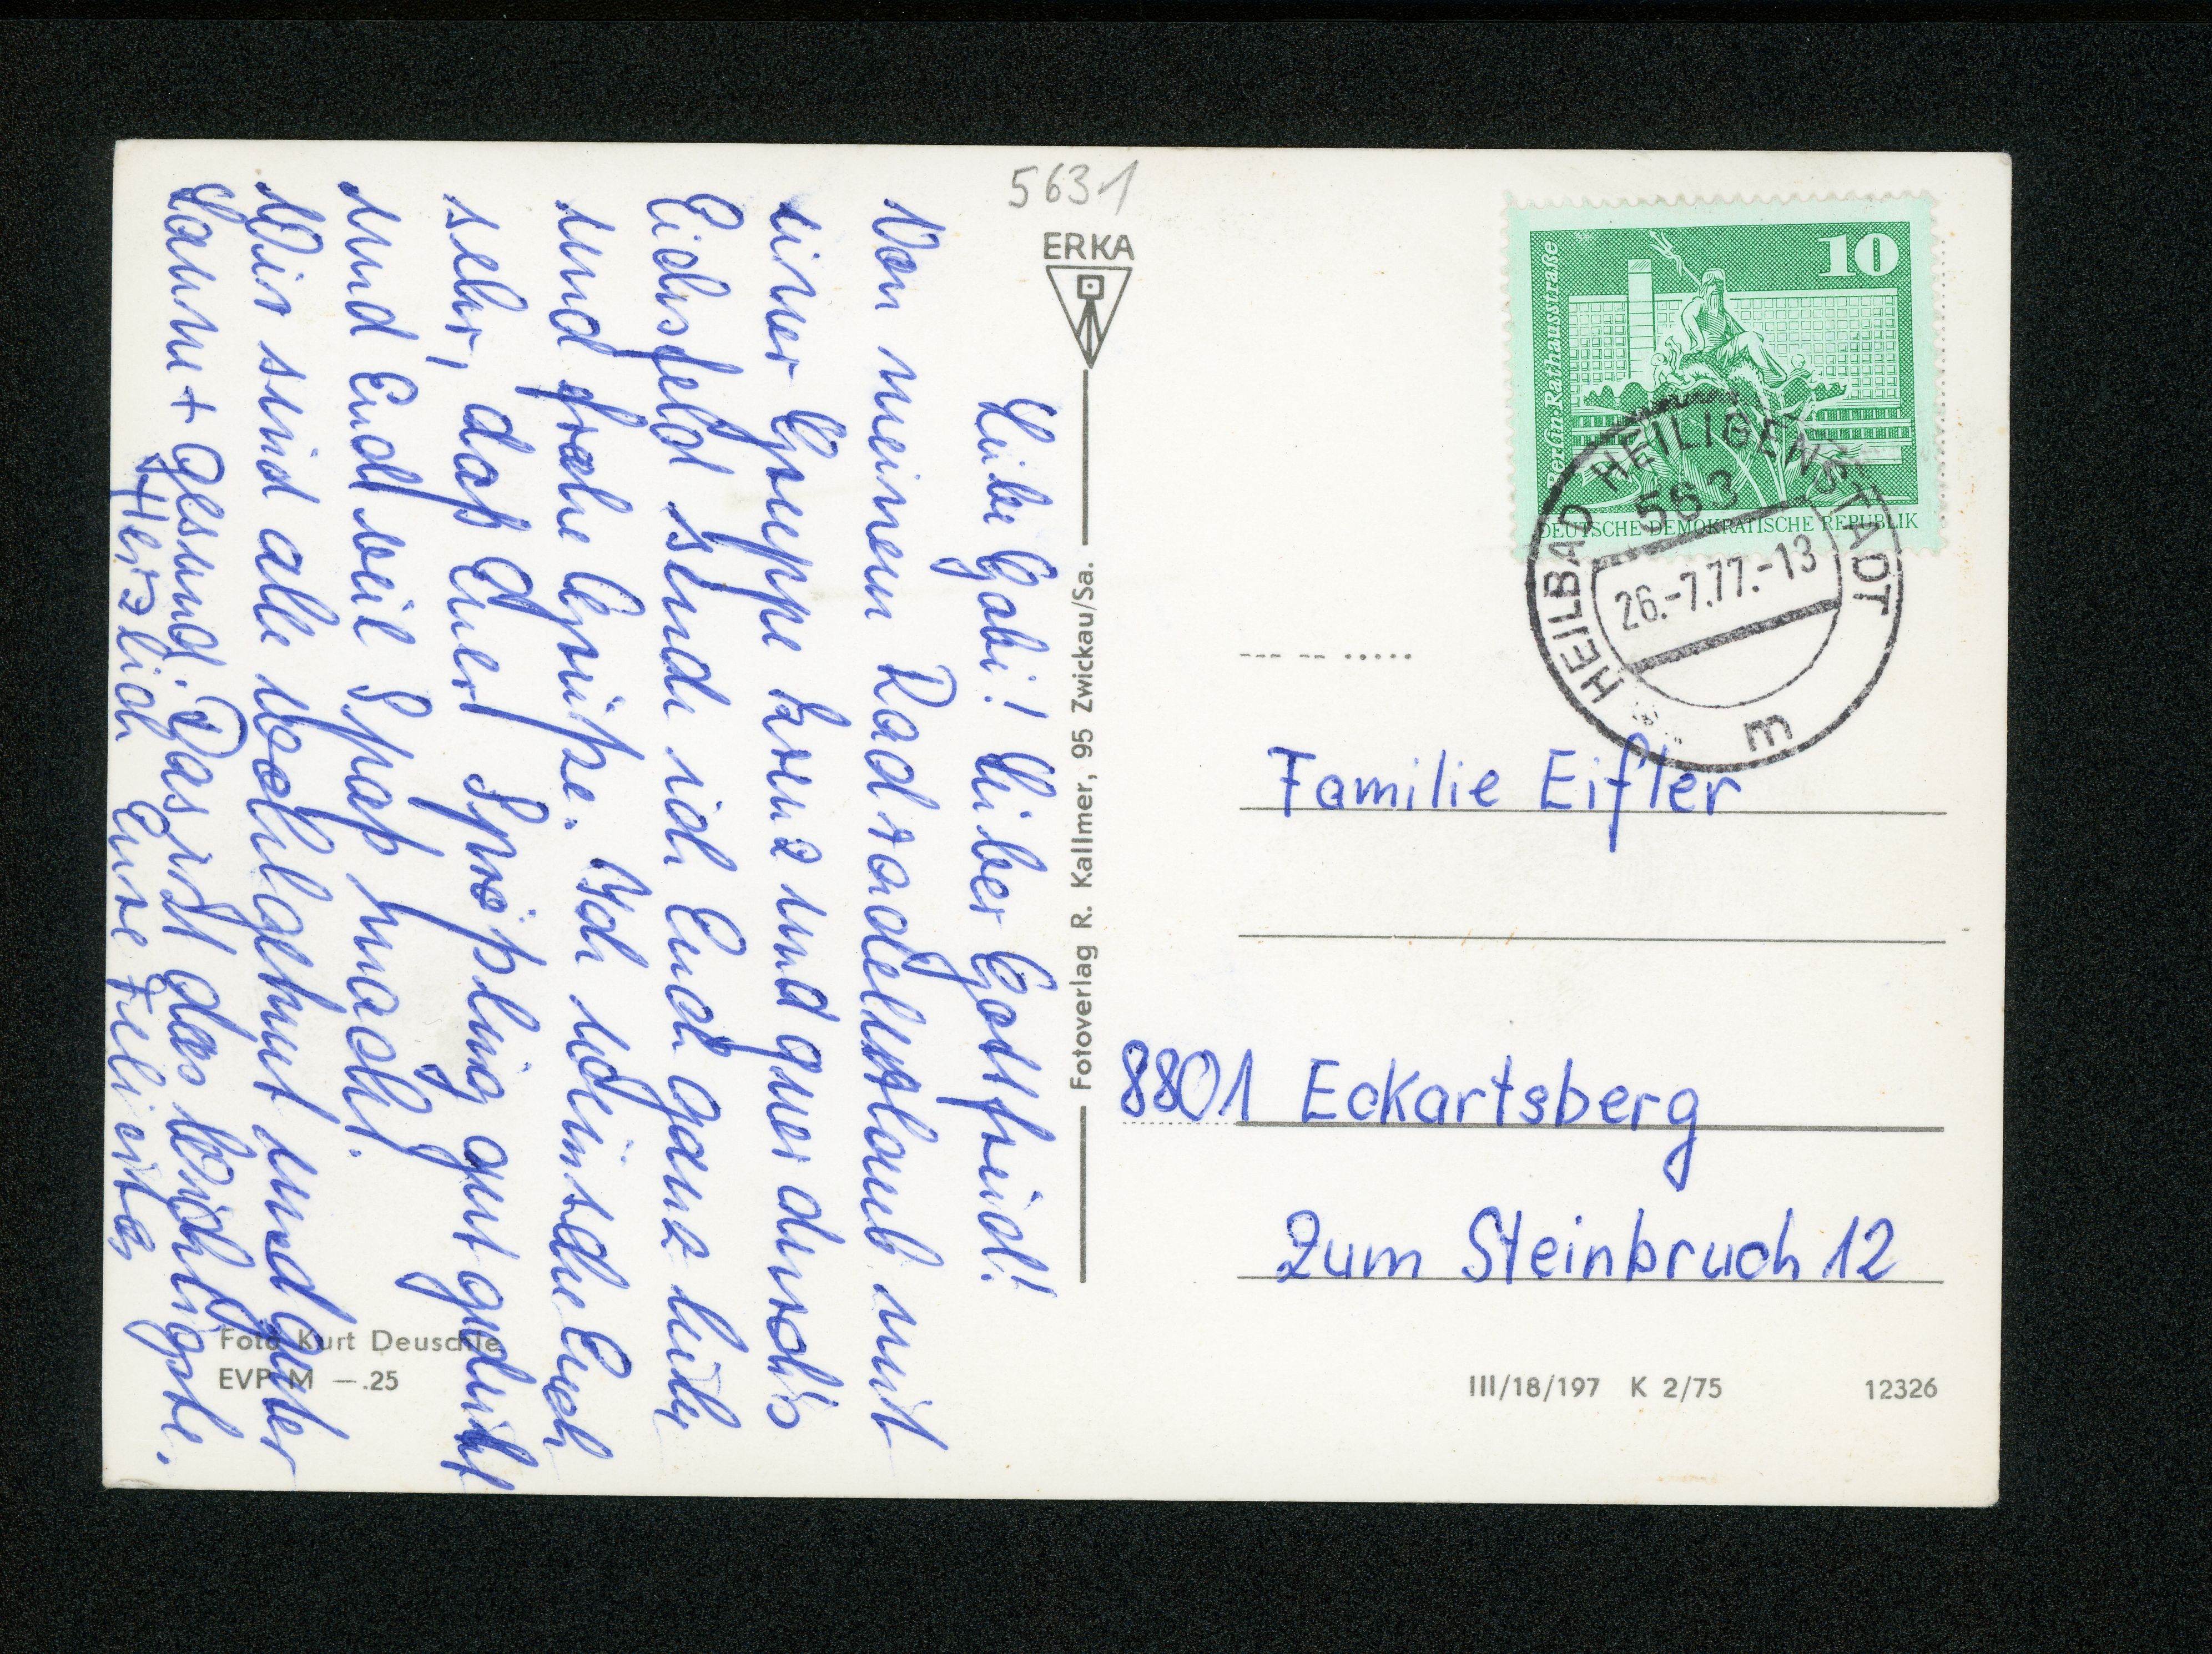 Liebe Gabi! Lieber Gottfried!
Von meinem Radradelurlaub mit
einer Gruppe kreuz und quer durch's
Eichsfeld sende ich Euch ganz liebe
und frohe Grüße. Ich wünsche Euch
sehr, daß Euer Sprößling gut gedeiht
und Euch viel Spaß macht.
Wir sind alle wohlgemut und guter
Laune + gesund. Das ist das Wichtigste.
Herzlich Eure Felicitas
Foto Kurt Deuschle
EVP M –.25
5631
ERKA
Fotoverlag R. Kallmer, 95 Zwickau/Sa.
10
Berlin, Rathausstraße
DEUTSCHE DEMOKRATISCHE REPUBLIK
HEILBAD HEILIGENSTADT
563
26.-7.77.-13
m
Familie Eifler
8801 Eckartsberg
Zum Steinbruch 12
III/18/197 K 2/75
12326